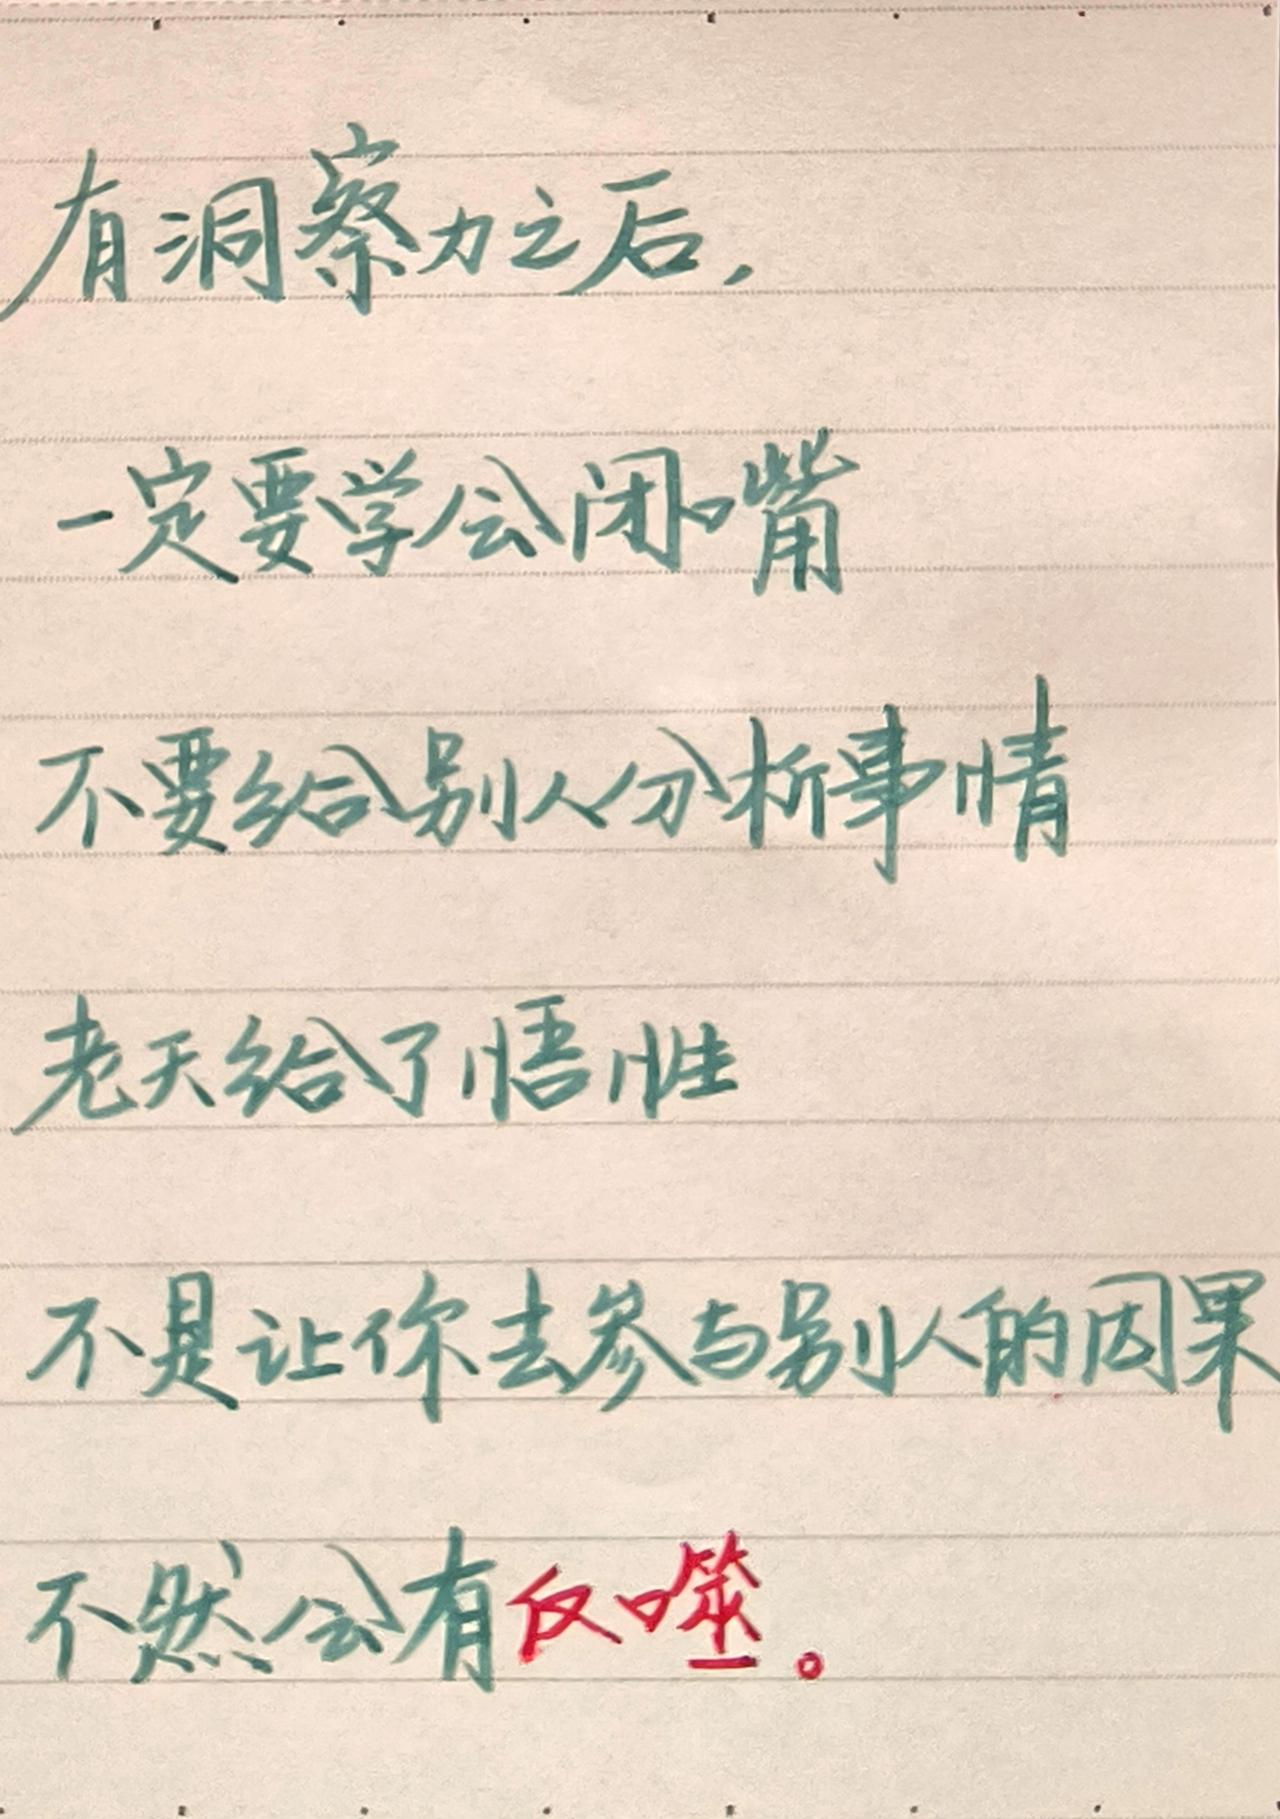 有洞察力之后，
一定要学会闭嘴
不要给别人分析事情
老天给了悟性
不是让你去参与别人的因果
不然会有反噬。